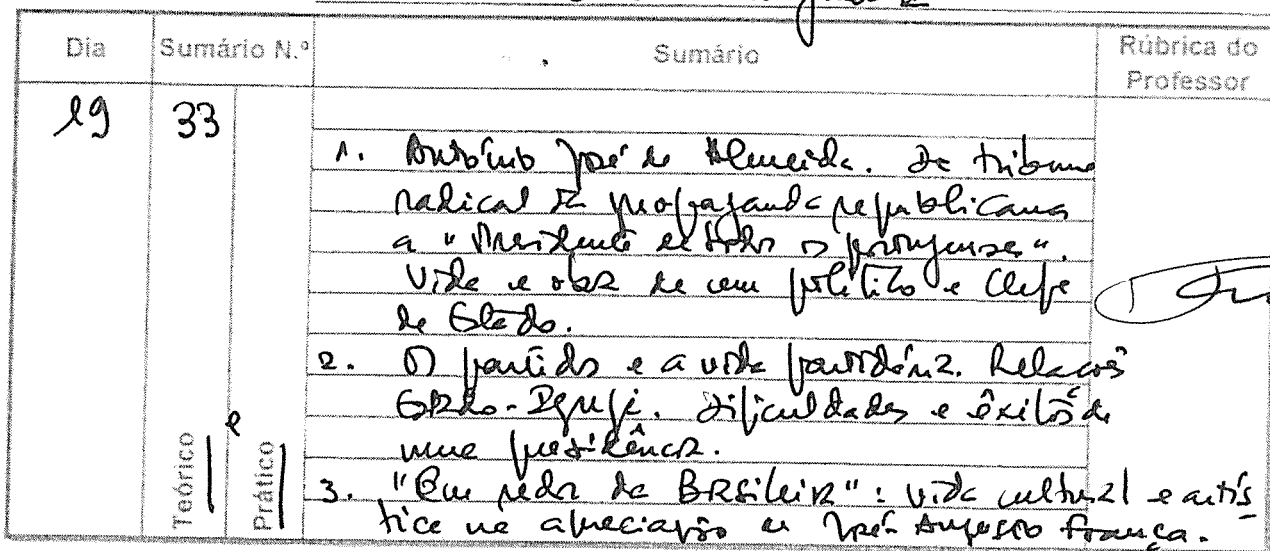 Dia Sumário N.º Sumário Rúbrica do Professor
19 33
1. António José de Almeida. De tribuno
radical da propaganda republicana
a "Presidente de todos os portugueses".
Vida e obra de um político e Chefe
de Estado.
2. Os partidos e a vida partidária. Relações
Estado-Igreja. Dificuldades e êxitos de
uma presidência.
Teórico e Prático
3. "Em redor da Brasileira": vida cultural e artís
tica na apreciação de José Augusto França.